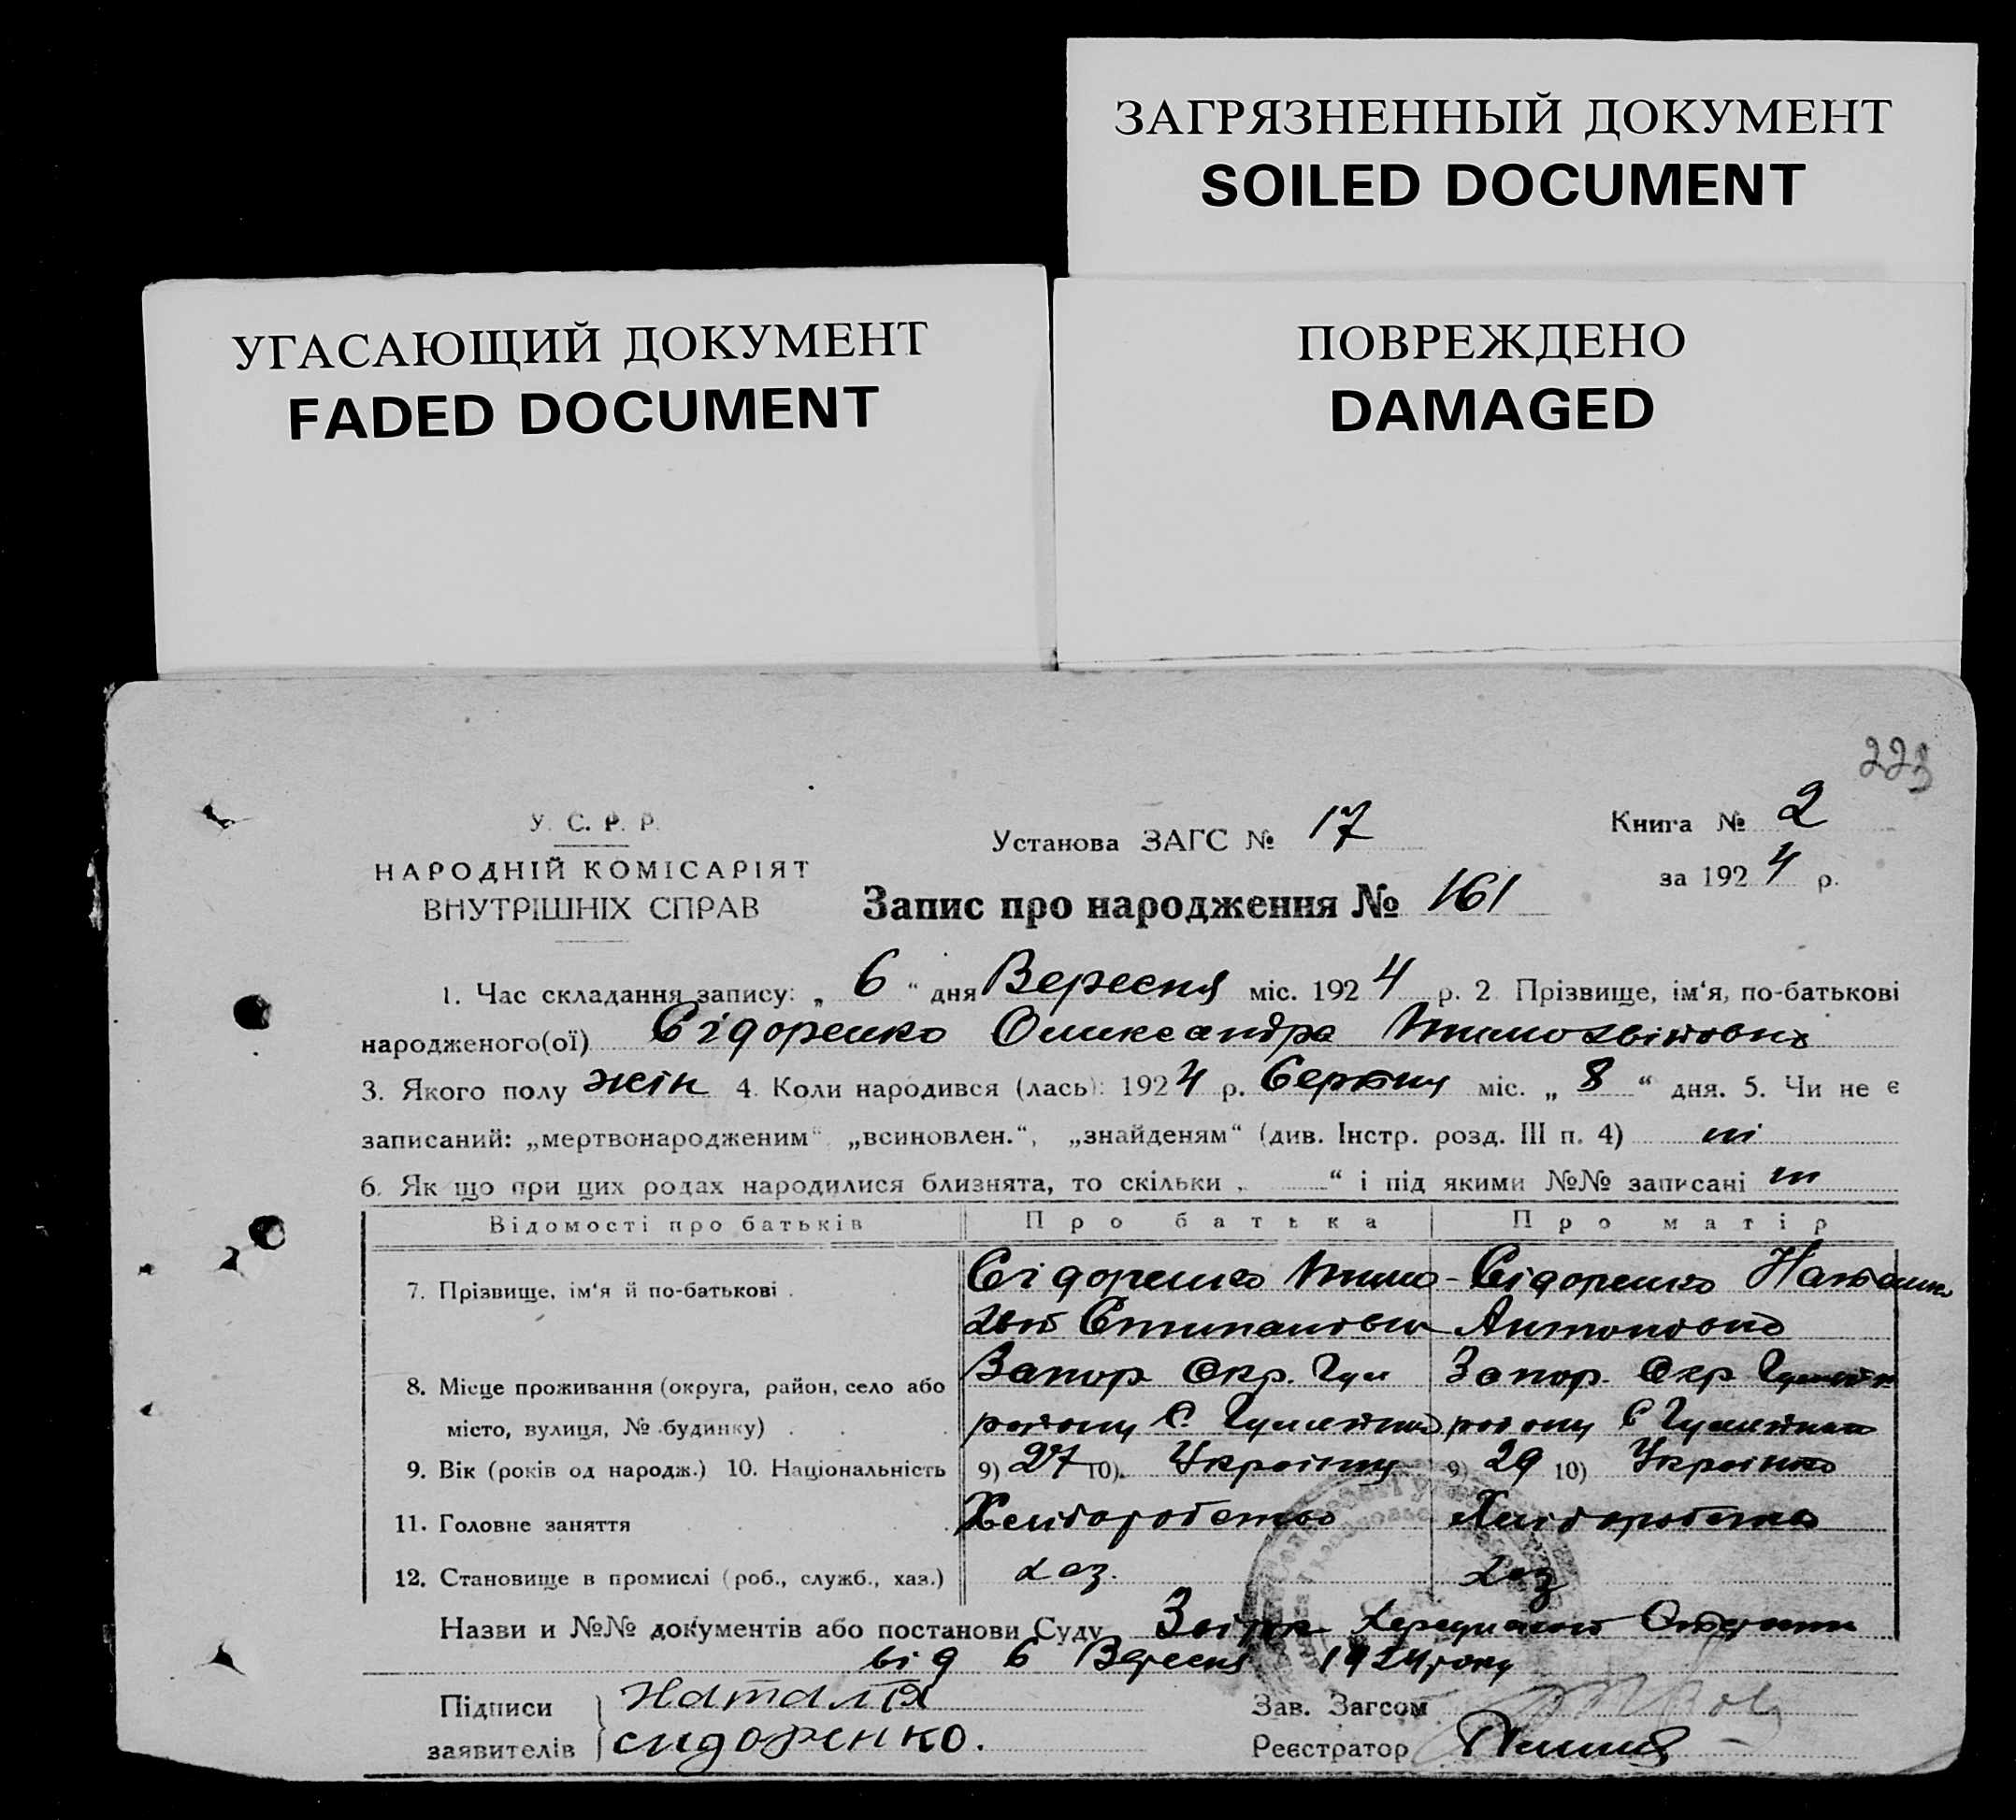 ЗАГРЯЗНЕННЫЙ ДОКУМЕНТ
SOILED DOCUMENT
УГАСАЮЩИЙ ДОКУМЕНТ
FADED DOCUMENT
ПОВРЕЖДЕНО
DAMAGED
223
У. С. Р. Р.
НАРОДНІЙ КОМІСАРІЯТ
ВНУТРІШНІХ СПРАВ
Установа ЗАГС № 17
Книга № 2
за 1924 р.
Запис про народження № 161
1. Час складання запису: „ 6 “ дня Вересня міс. 1924 р. 2 Прізвище, ім‘я, по-батькові
народженого(ої) Сідоренко Олександра
3. Якого полу жін 4. Коли народився (лась): 1924 р. Серпня міс. „ 8 “ дня. 5. Чи не є
записаний: „мертвонародженим“ „всиновлен.“, „знайденям“ (див. Інстр. розд. III п. 4) ні
6. Як що при цих родах народилися близнята, то скільки „ “ і під якими №№ записані ні
Відомості про батьків Про батька Про матір
7. Прізвище, ім‘я й по-батькові . Сідоренко Сідоренко
Антоновна
8. Місце проживання (округа, район, село або Запор Окр. Гул Запор. Окр
місто, вулиця, № будинку) . . . району С. району С
9. Вік (років од народж.) 10. Національність 9) 27 10) 9) 29 10) Українка
11. Головне заняття Хліборобство
12. Становище в промислі (роб., служб., хаз.) хаз. хаз
Назви и №№ документів або постанови Суду
від 6 Вересня 1924 року
Підписи Наталія
заявителів сидоренко.
Зав. Загсом
Реєстратор